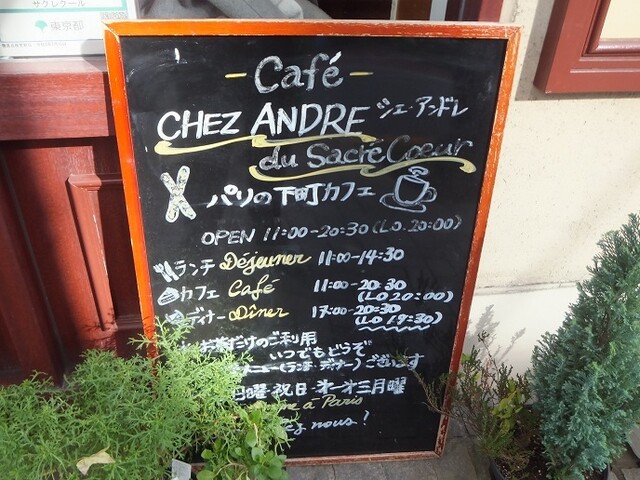 サクレクール
東京都
Café
CHEZ ANDRE シェ・アンドレ
du Sacré Coeur
パリの下町カフェ
OPEN 11:00-20:30 (L.O. 20:00)
ランチ Déjeuner 11:00-14:30
カフェ Café 11:00-20:30
(LO 20:00)
ディナー Dîner 17:00-20:30
(LO 19:30)
お茶だけのご利用
いつでもどうぞ
メニュー(ランチ・ディナー)ございます
日曜・祝日・第一・第三月曜
à Paris
nous!